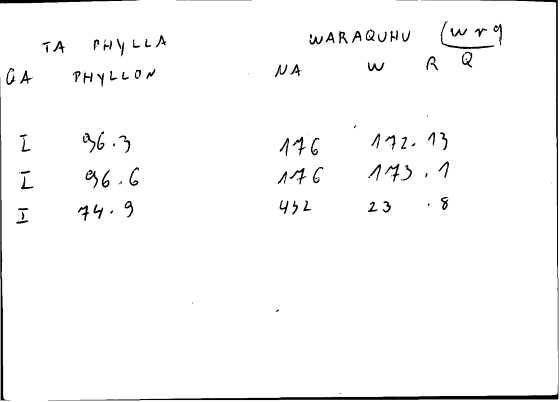 TA PHYLLA WARAQUHU (wrq
GA PHYLLON NA W R Q
I 96.3 176 172.13
I 96.6 176 173.1
I 74.9 432 23.8